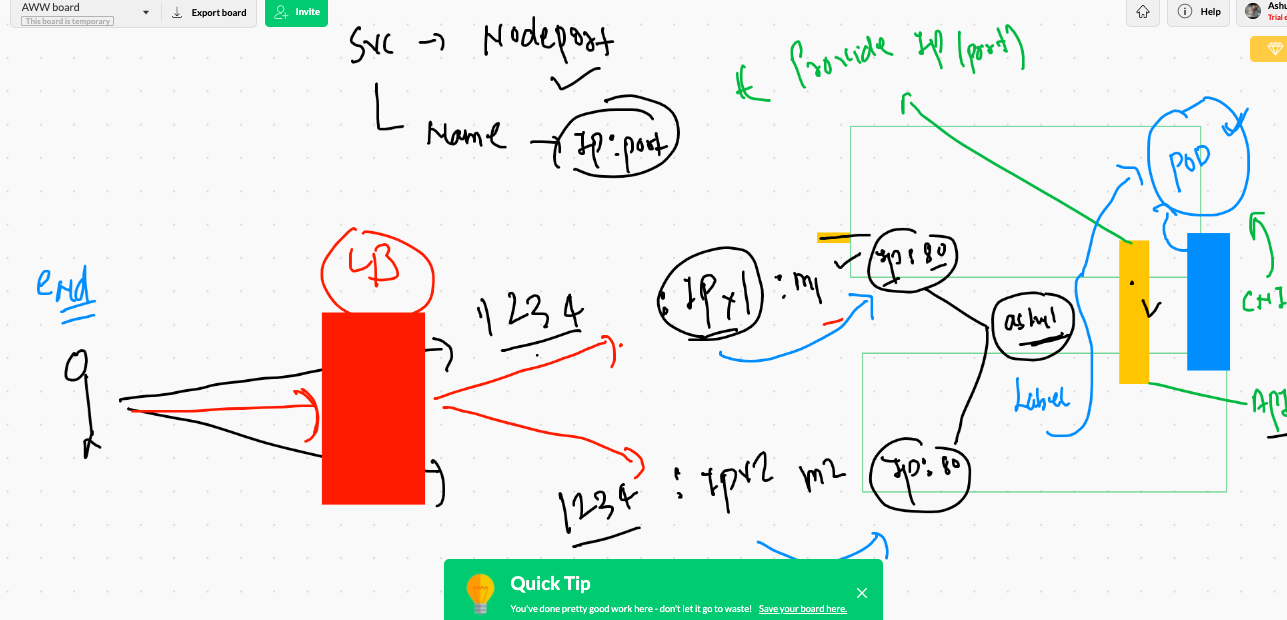 AWW board
This board is temporary
Export board
Invite
Help
Ashu
Trial
Svc → Nodeport
Provide IP (port)
Name → IP:port
POD
LB
end
1234
: IPv1 : m1
IP:80
ashu1
CNI
Label
API
1234 : IPv2 m2
IP:80
Quick Tip
You've done pretty good work here - don't let it go to waste! Save your board here.